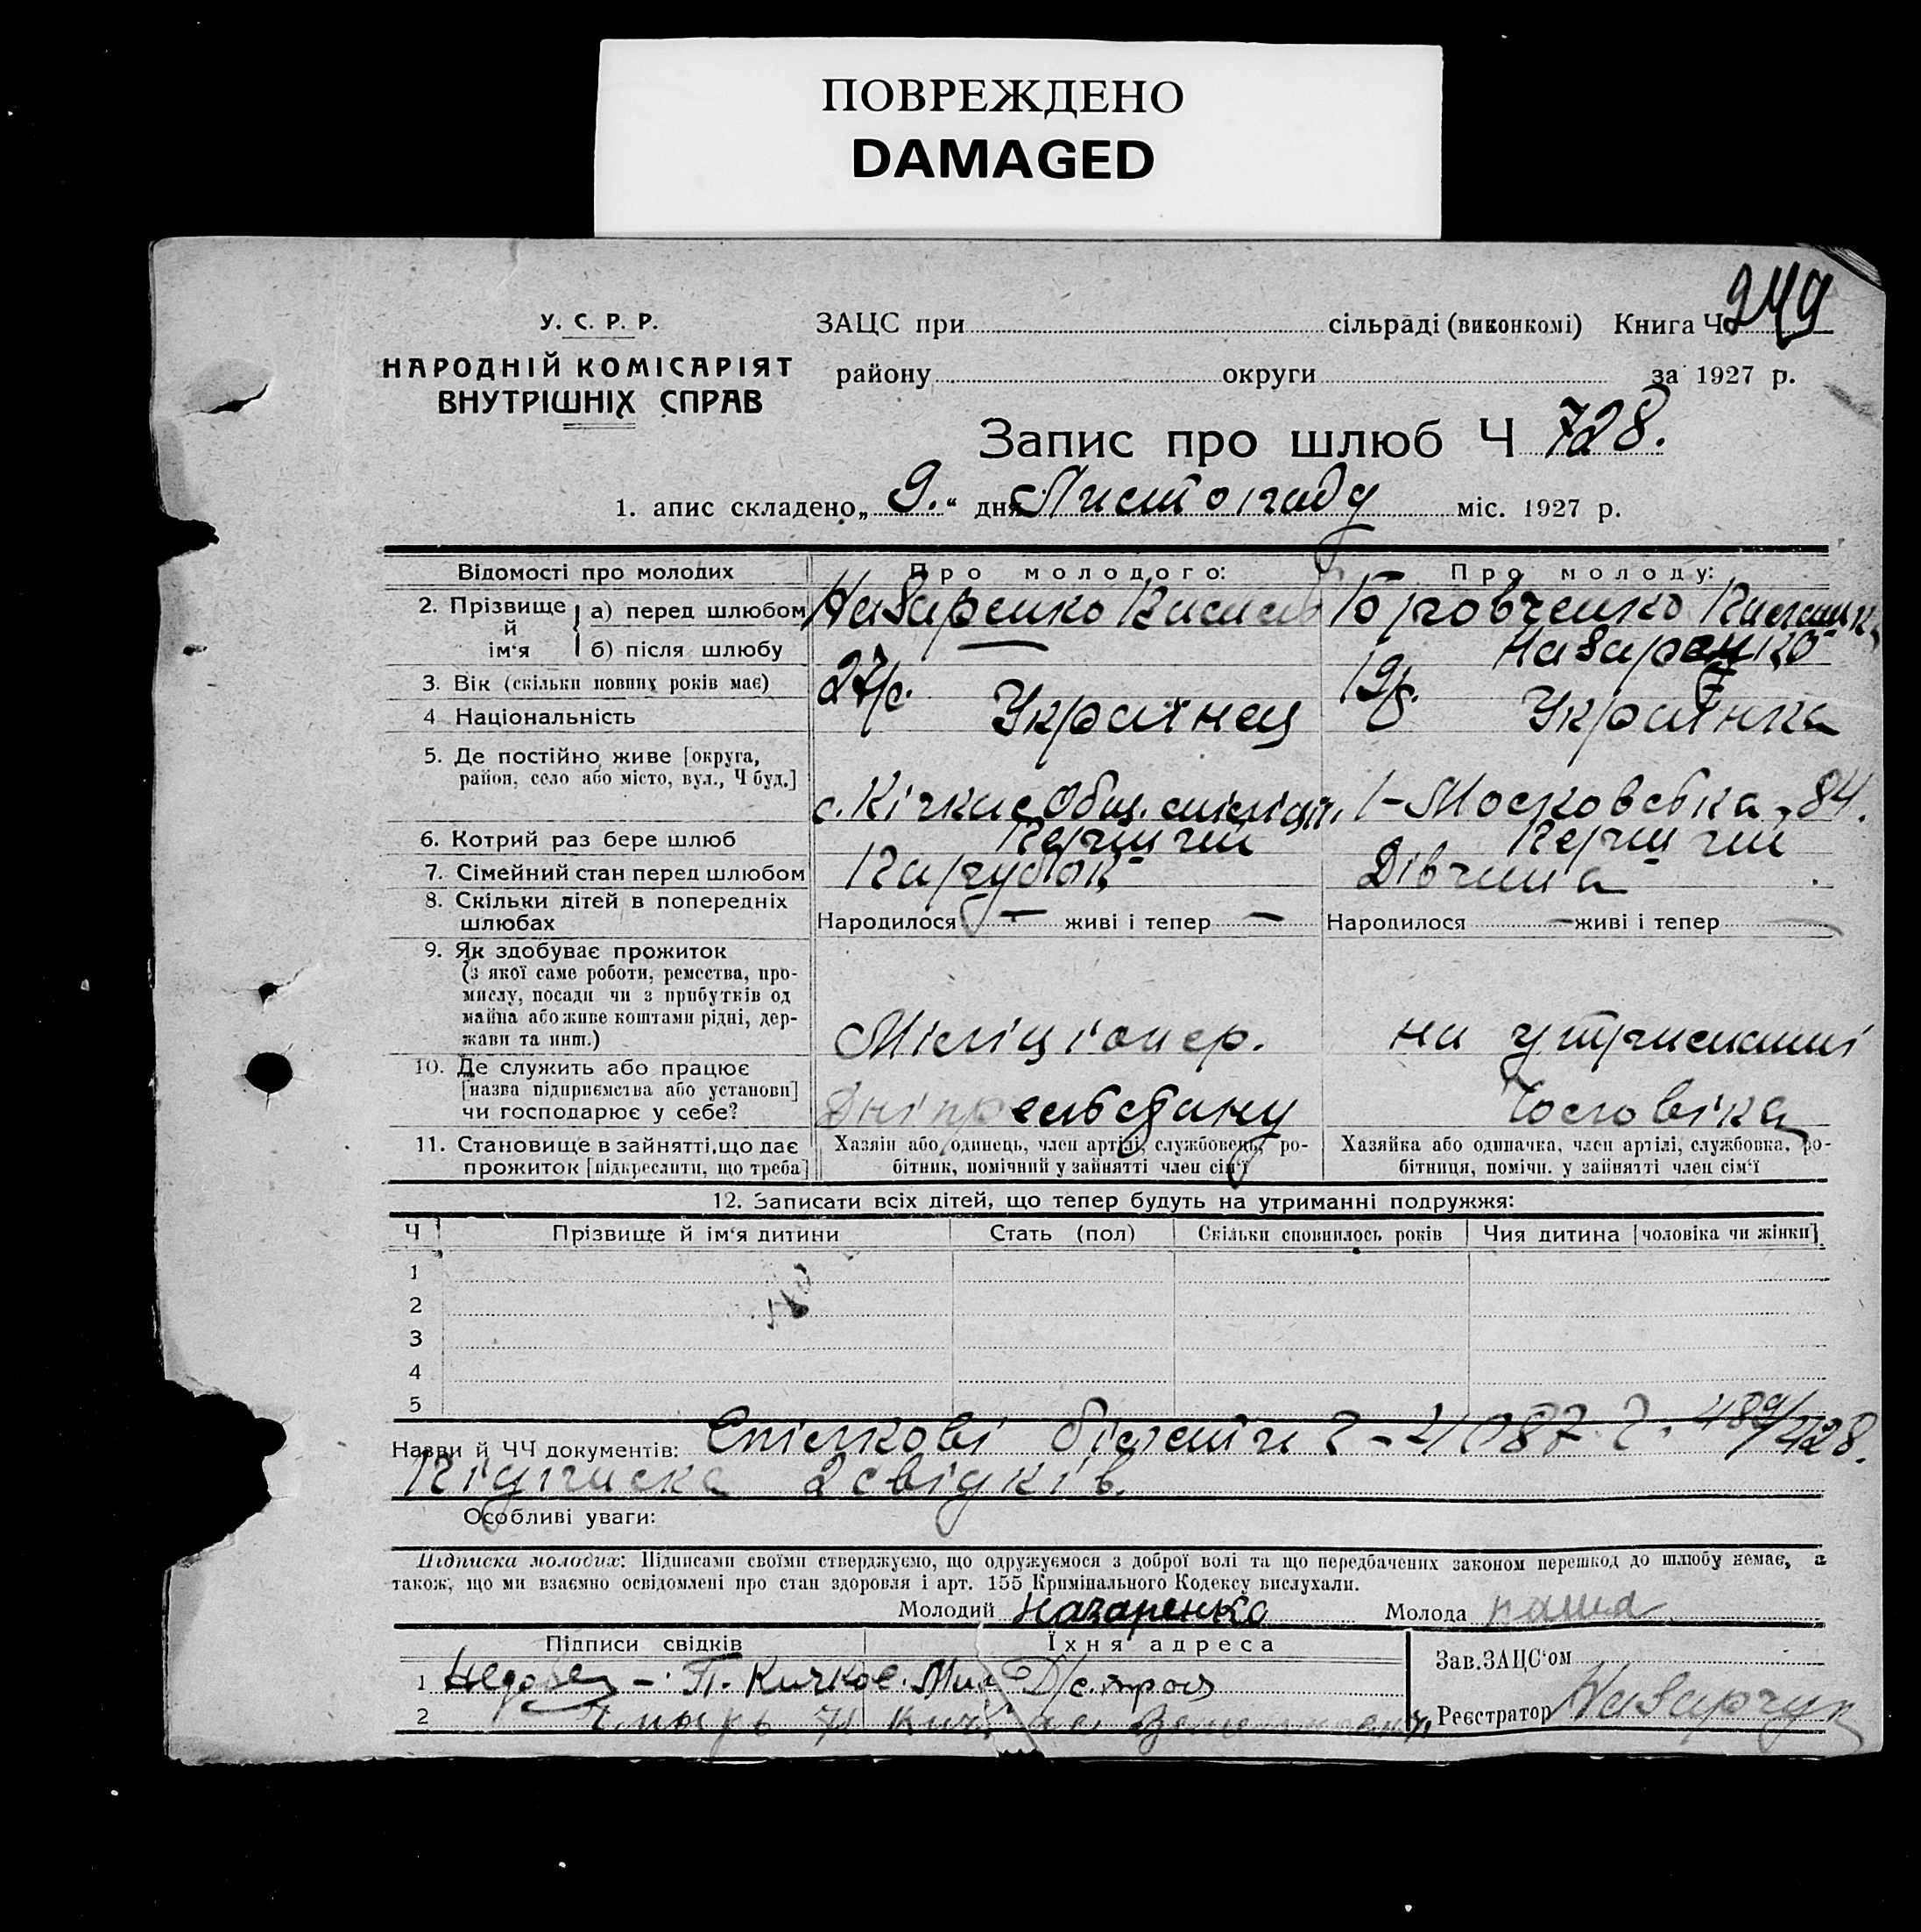 ПОВРЕЖДЕНО
DAMAGED
249
У. С. Р. Р.
НАРОДНІЙ КОМІСАРІЯТ
ВНУТРІШНІХ СПРАВ
ЗАЦС при сільраді (виконкомі) Книга Ч
району округи за 1927 р.
Запис про шлюб Ч 728.
1. апис складено „ 9. “ дня Листопаду міс. 1927 р.
Відомості про молодих Про молодого: Про молоду:
2. Прізвище й ім‘я а) перед шлюбом Назаренко
б) після шлюбу Назаренко
3. Вік (скільки повних років має) 27 р. 19 р.
4 Національність Українец Українка
5. Де постійно живе [округа, район, село або місто, вул., Ч буд.]
с. Кічкас 1-Московська, 84.
6. Котрий раз бере шлюб Перший Перший
7. Сімейний стан перед шлюбом Парубок Дівчина
8. Скільки дітей в попередніх шлюбах Народилося — живі і тепер — Народилося — живі і тепер —
9. Як здобуває прожиток
(з якої саме роботи, ремества, про-
мислу, посади чи з прибутків од
майна або живе коштами рідні, дер-
жави та инш.)
Міліціонер. на утриманні
10. Де служить або працює
[назва підприємства або установи]
чи господарює у себе?
Дніпрельстану Чоловіка
11. Становище в зайнятті, що дає
прожиток [підкреслити, що треба]
Хазяїн або одинець, член артілі, службовець, ро-
бітник, помічний у зайнятті член сім‘ї
Хазяйка або одиначка, член артілі, службовка, ро-
бітниця, помічн. у зайнятті член сім‘ї
12. Записати всіх дітей, що тепер будуть на утриманні подружжя:
Ч Прізвище й ім‘я дитини Стать (пол) Скільки сповнилось років Чия дитина [чоловіка чи жінки]
1
2
3
4
5
Назви й ЧЧ документів: Спілкові білети
Підписка 2 свідків.
Особливі уваги:
Підписка молодих: Підписами своїми стверджуємо, що одружуємося з доброї волі та що передбачених законом перешкод до шлюбу немає, а
також, що ми взаємно освідомлені про стан здоровля і арт. 155 Кримінального Кодексу вислухали.
Молодий Назаренко Молода
Підписи свідків Їхня адреса
Зав. ЗАЦС‘ом
1
2
Реєстратор Назарчук